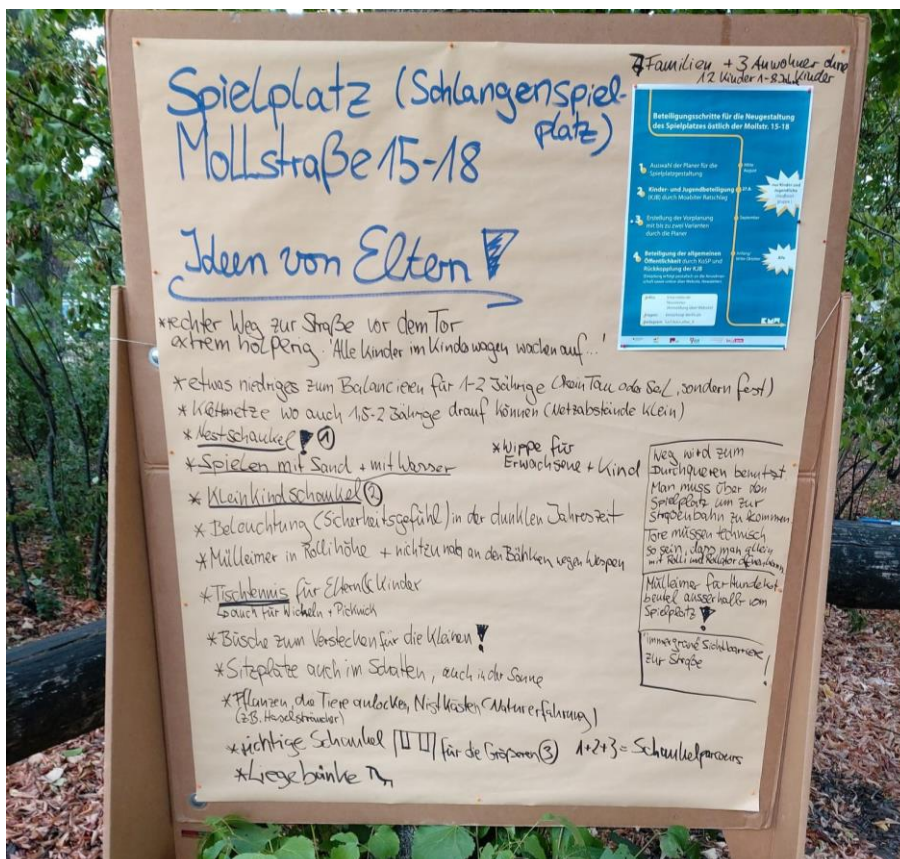 7 Familien + 3 Anwohner ohne
12 Kinder 1-8 Jh. Kinder
Spielplatz (Schlangenspiel-
platz)
Mollstraße 15-18
Ideen von Eltern
Beteiligungsschritte für die Neugestaltung
des Spielplatzes östlich der Mollstr. 15-18
1. Auswahl der Planer für die
Spielplatzgestaltung
August
2. Kinder- und Jugendbeteiligung
(KJB) durch Moabiter Ratschlag
nur Kinder und
Jugendliche
3. Erstellung der Vorplanung
mit bis zu zwei Varianten
durch die Planer
September
4. Beteiligung der allgemeinen
Öffentlichkeit (durch KoSP und
Rückkopplung der KJB)
Alle
* rechter Weg zur Straße vor dem Tor
extrem holperig. 'Alle Kinder im Kinderwagen wachen auf...'
* etwas niedriges zum Balancieren für 1-2 Jährige (kein Tau oder Seil, sondern fest)
* Kletternetze wo auch 1,5-2 Jährige drauf können (Netzabstände klein)
* Nestschaukel ! ①
* Wippe für
Erwachsene + Kind
* Spielen mit Sand + mit Wasser
* Kleinkindschaukel ②
* Beleuchtung (Sicherheitsgefühl) in der dunklen Jahreszeit
* Mülleimer in Rollihöhe + nicht zu nah an den Bänken wegen Wespen
* Tischtennis für Eltern & Kinder
↳ auch für Wickeln + Picknick
* Büsche zum Verstecken für die Kleinen !
* Sitzplätze auch im Schatten, auch in der Sonne
* Pflanzen, die Tiere anlocken, Nistkästen (Naturerfahrung)
(z.B. Haselsträucher)
* richtige Schaukel für die Größeren ③ 1+2+3 = Schaukelparcours
* Liegebänke
Weg wird zum
Durchqueren benutzt.
Man muss über den
Spielplatz um zur
Straßenbahn zu kommen.
Tore müssen technisch
so sein, dass man allein
mit Rolli und Rollator
Mülleimer für Hundekot
beutel ausserhalb vom
Spielplatz !
immergrüne Sichtbarriere
zur Straße !